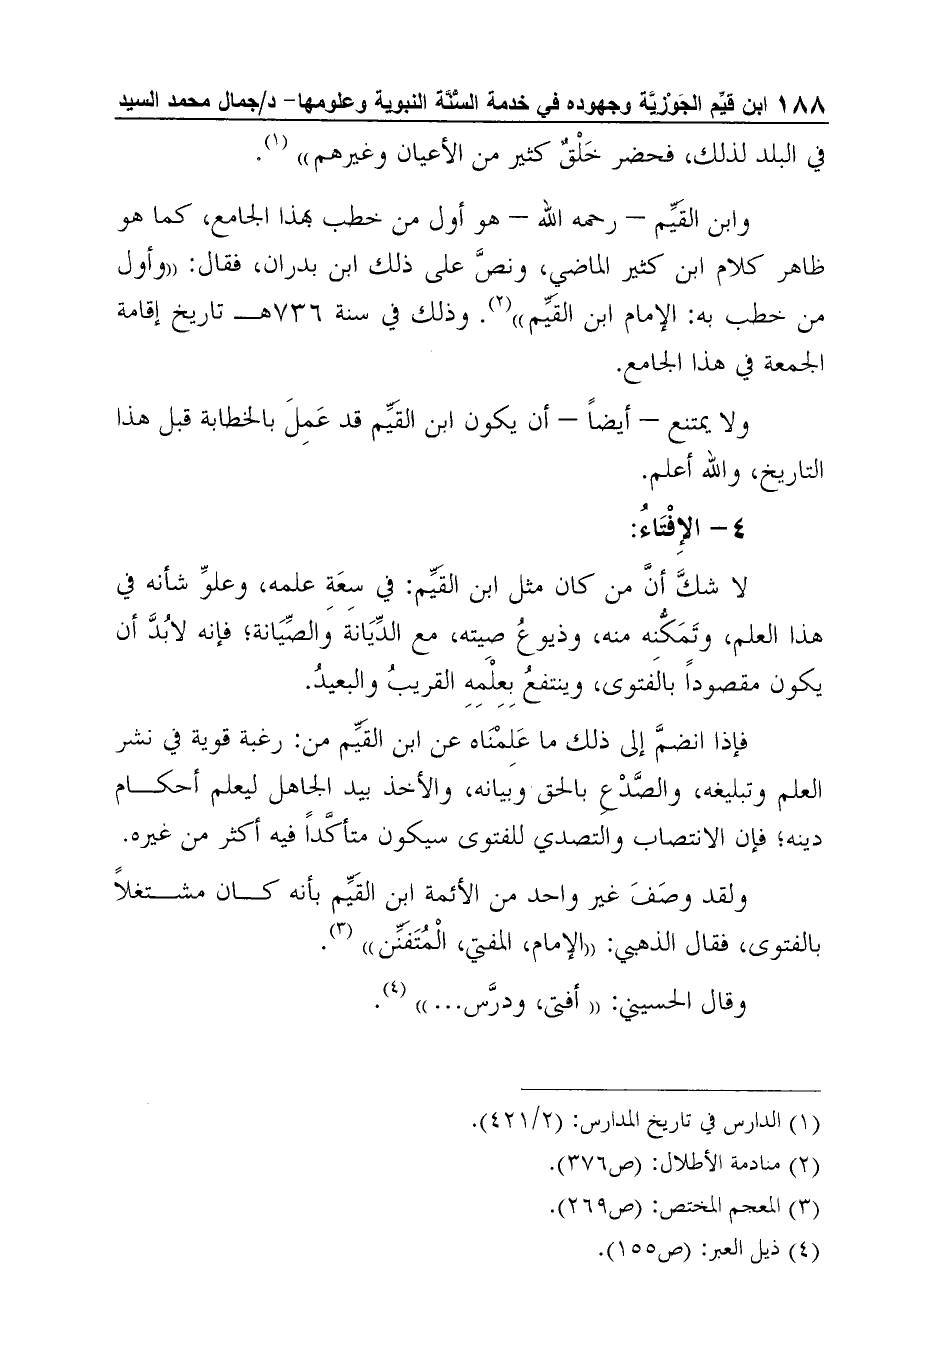 ١٨٨ ابن قيِّم الجَوْزيَّة وجهوده في خدمة السُّنَّة النبوية وعلومها- د/جمال محمد السيد
في البلد لذلك، فحضر خَلْقٌ كثير من الأعيان وغيرهم)) (١).
وابن القَيِّم – رحمه الله – هو أول من خطب بهذا الجامع، كما هو
ظاهر كلام ابن كثير الماضي، ونصَّ على ذلك ابن بدران، فقال: ((وأول
من خطب به: الإمام ابن القَيِّم))(٢). وذلك في سنة ٧٣٦هـ تاريخ إقامة
الجمعة في هذا الجامع.
ولا يمتنع – أيضاً – أن يكون ابن القَيِّم قد عَمِلَ بالخطابة قبل هذا
التاريخ، والله أعلم.
٤ – الإفْتَاءُ:
لا شكَّ أنَّ من كان مثل ابن القَيِّم: في سِعَةِ علمه، وعلوِّ شأنه في
هذا العلم، وتَمَكُّنِه منه، وذيوعُ صِيته، مع الدِّيَانة والصِّيَانة؛ فإنه لابُدَّ أن
يكون مقصوداً بالفتوى، وينتفعُ بِعِلْمِهِ القريبُ والبعيدُ.
فإذا انضمَّ إلى ذلك ما عَلِمْنَاه عن ابن القَيِّم من: رغبة قوية في نشر
العلم وتبليغه، والصَّدْعِ بالحق وبيانه، والأخذ بيد الجاهل ليعلم أحكـــام
دينه؛ فإن الانتصاب والتصدي للفتوى سيكون متأكَّداً فيه أكثر من غيره.
ولقد وصَفَ غير واحد من الأئمة ابن القَيِّم بأنه كـــان مشــتغلاً
بالفتوى، فقال الذهبي: ((الإمام، المفتي، الْمُتَفَنِّن)) (٣).
وقال الحسيني: (( أفتى، ودرَّس...)) (٤).
(١) الدارس في تاريخ المدارس: (٤٢١/٢).
(٢) منادمة الأطلال: (ص٣٧٦).
(٣) المعجم المختص: (ص٢٦٩).
(٤) ذيل العبر: (ص١٥٥).